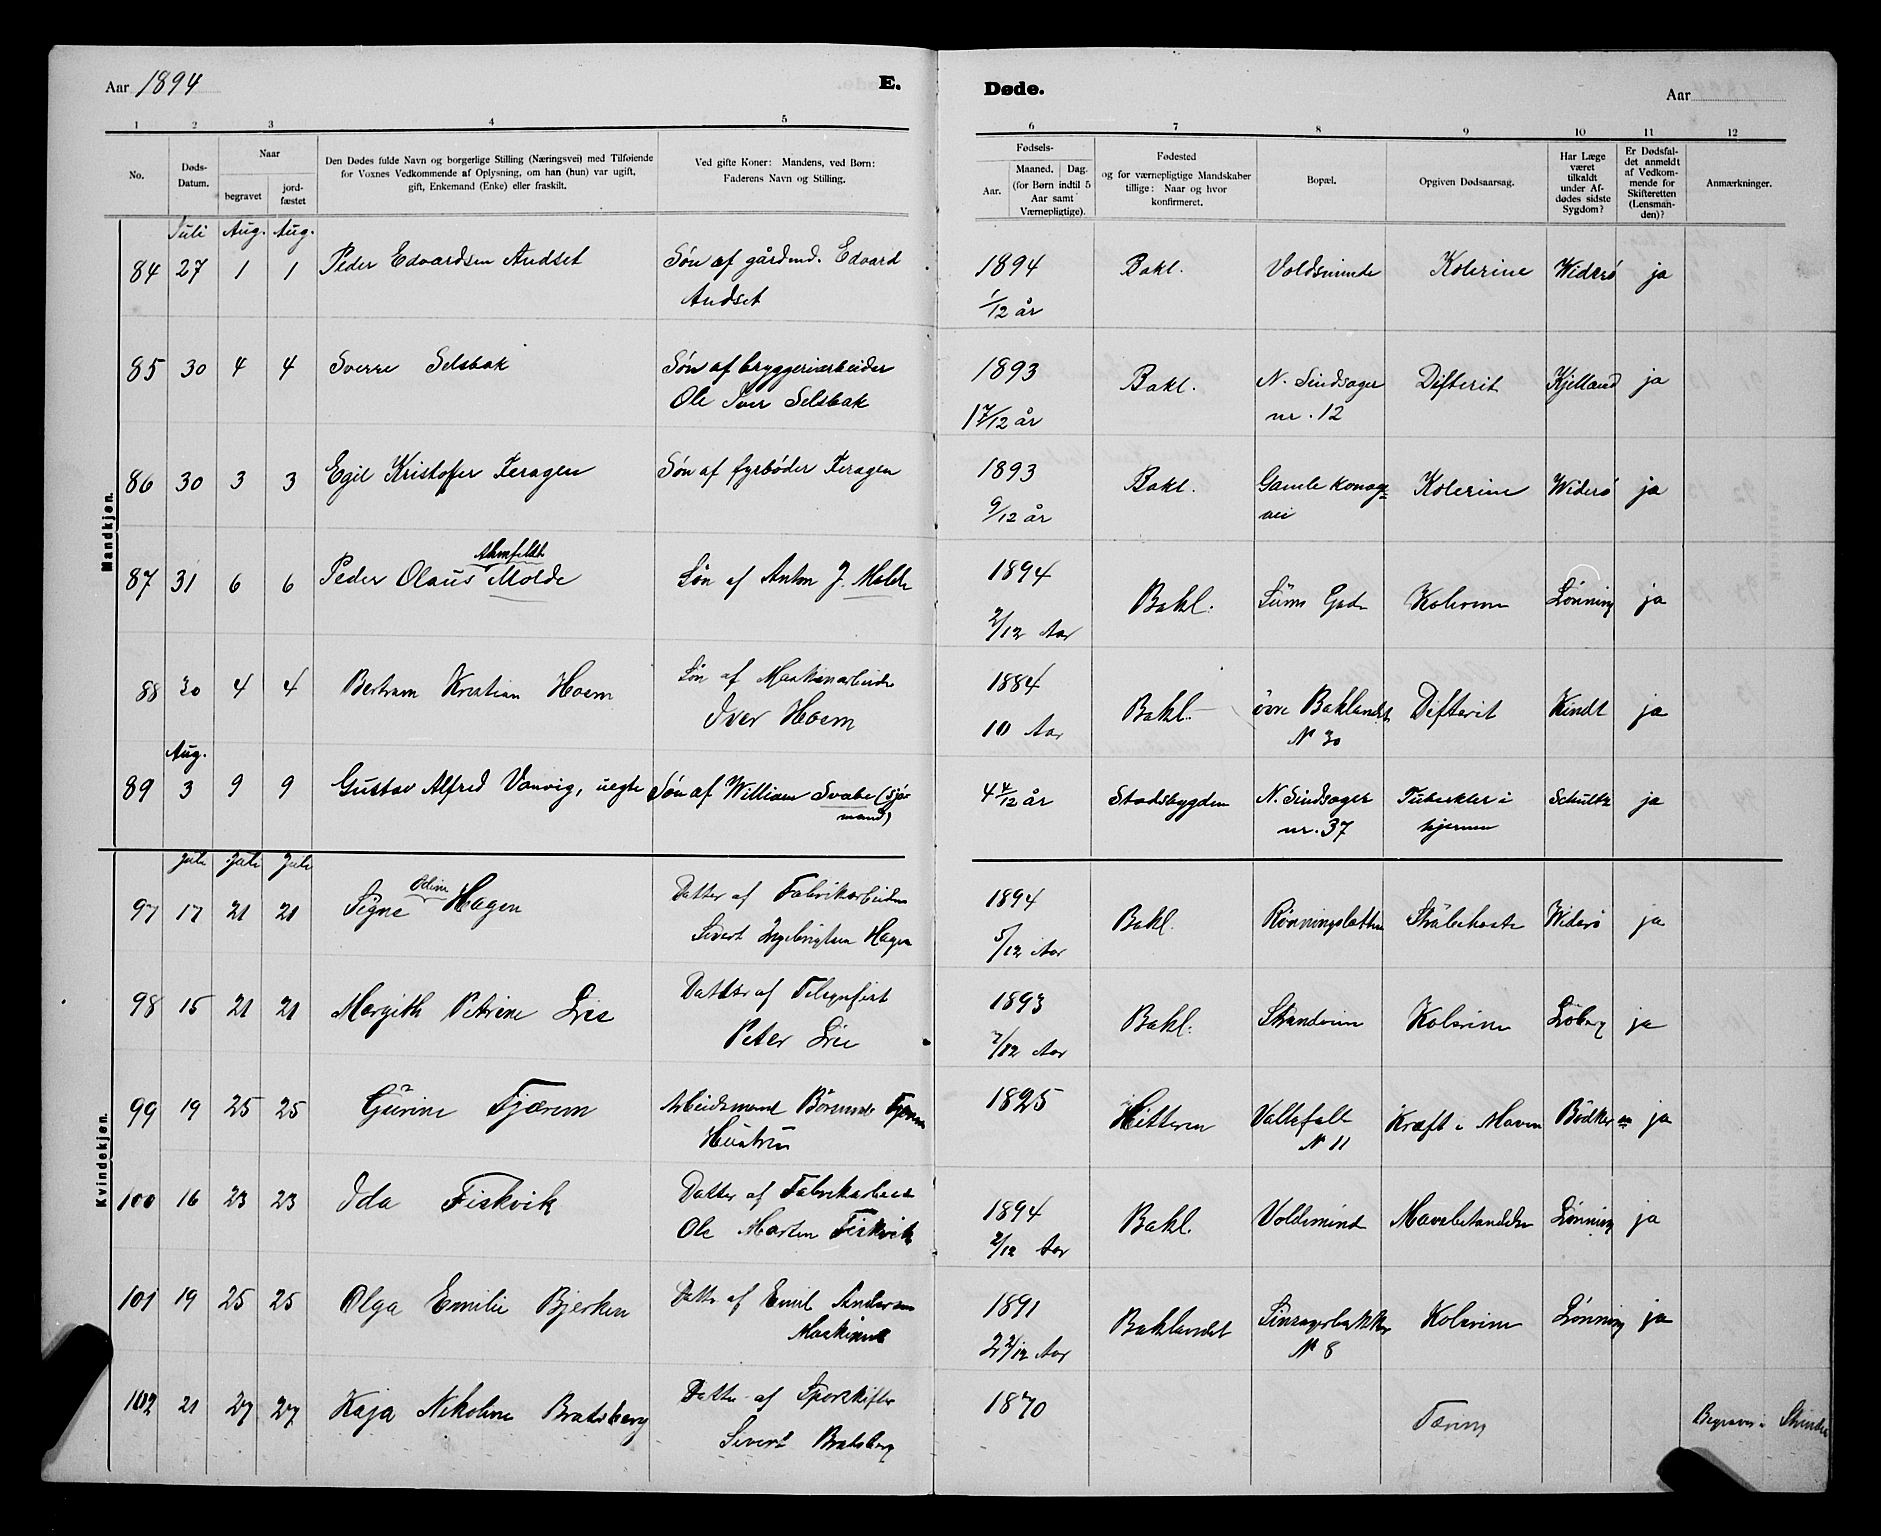 Aar 1894
E.
Døde.
Aar
1 2 3 4 5 6 7 8 9 10 11 12
No.
Døds-Datum.
Naar
begravet
jord-fæstet
Den Dødes fulde Navn og borgerlige Stilling (Næringsvei) med Tilføiende
for Voxnes Vedkommende af Oplysning, om han (hun) var ugift,
gift, Enkemand (Enke) eller fraskilt.
Ved gifte Koner: Mandens, ved Børn:
Faderens Navn og Stilling.
Fødsels-
Aar.
Maaned. Dag.
(for Børn indtil 5
Aar samt
Værnepligtige).
Fødested
og for værnepligtige Mandskaber
tillige: Naar og hvor
konfirmeret.
Bopæl.
Opgiven Dødsaarsag.
Har Læge
været
tilkaldt
under Af-
dødes sidste
Sygdom?
Er Dødsfal-
det anmeldt
af Vedkom-
mende for
Skifteretten
(Lensman-
den)?
Anmærkninger.
Mandkjøn.
Juli Aug. Aug.
84 27 1 1 Peder Edvardsen Andset Søn af gårdmd. Edvard 1894 Bakl. Voldsminde Kolerine Widerö ja
Andset 1/12 år
85 30 4 4 Sverre Selsbak Søn af bryggeriarbeider 1893 Bakl. N. Sindsager Difterit Kjelland ja
Ole Iver Selsbak 1 7/12 år nr. 12
86 30 3 3 Egil Kristoffer Feragen Søn af fyrbøder Feragen 1893 Bakl. Gamle Konge Kolerine Widerö ja
9/12 år vei
Almfeldt
87 31 6 6 Peder Olaus Molde Søn af Anton J. Molde 1894 Bakl. Sums Gade Kolerine Lønning ja
2/12 Aar
88 30 4 4 Bertram Kristian Hoem Søn af Maskinarbeider 1884 Bakl. övre Baklandet Difterit Kindt ja
Iver Hoem 10 Aar N 30
Aug.
89 3 9 9 Gustav Alfred Vanvig, uegte Søn af William Svabe (sjø- 4 4/12 år Stadsbygden N. Sindsager Tuberkler i Schultz ja
mand) nr. 37 hjernen
Kvindekjøn.
Juli Juli Juli
97 17 21 21 Signe Odine Hagen Datter af Fabrikarbeider 1894 Bakl. Rønningsletten Strubehoste Widerö ja
Sivert Ingebrigtsen Hagen 5/12 Aar
98 15 21 21 Margith Petrine Lie Datter af Telegrafist 1893 Bakl. Strandveien Kolerine Löberg ja
Peter Lie 7/12 Aar
99 19 25 25 Gurine Fjærem Arbeidsmand Fjærem 1825 Hitteren N 11 Kræft i Maven Bödker ja
Hustru
100 16 23 23 Ida Fiskvik Datter af Fabrikarbeid 1894 Bakl. Voldsmind Mavebetændelse Lønning ja
Ole Morten Fiskvik 2/12 Aar
101 19 25 25 Olga Emilie Bjerken Datter af Emil Andersen 1891 Baklandet Sinsagerbakken Kolerine Lønning ja
Maskinist 2 7/12 Aar N 8
102 21 27 27 Kaja Nikoline Bratsberg Datter af Sporskifter 1870 Tæring Begraves i Strinden
Sivert Bratsberg